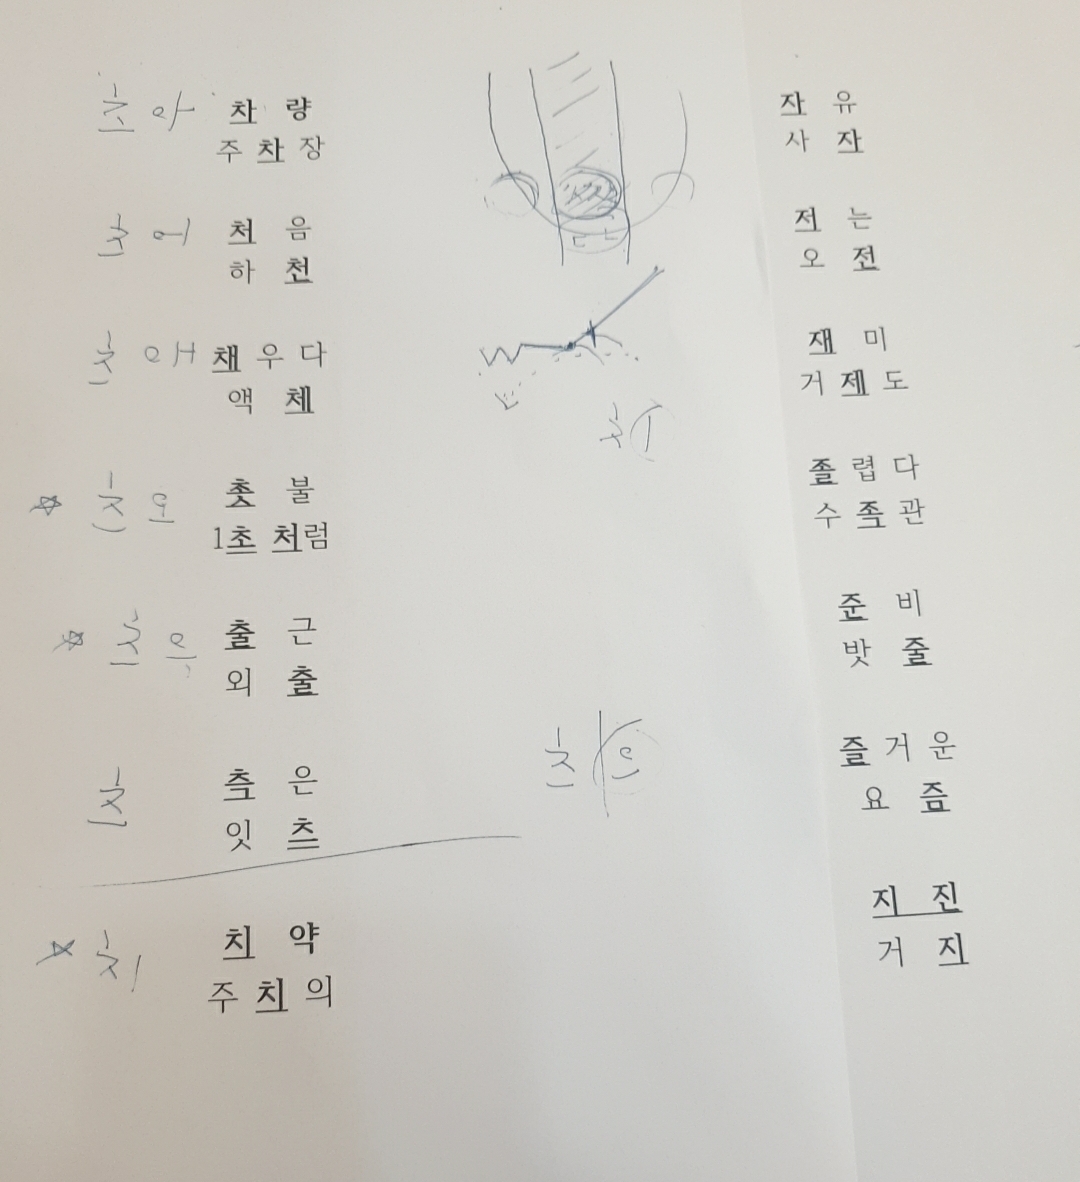 츠 아 차 량
주 차 장
츠 어 처 음
하 천
츠 애 채 우 다
액 체
치
츠 오 촛 불
1초 처럼
츠 우 출 근
외 출
츠 오
츠 측 은
잇 츠
치 치 약
주 치 의
자 유
사 자
저 는
오 전
재 미
거 제 도
졸 렵 다
수 족 관
준 비
밧 줄
즐 거 운
요 즘
지 진
거 지